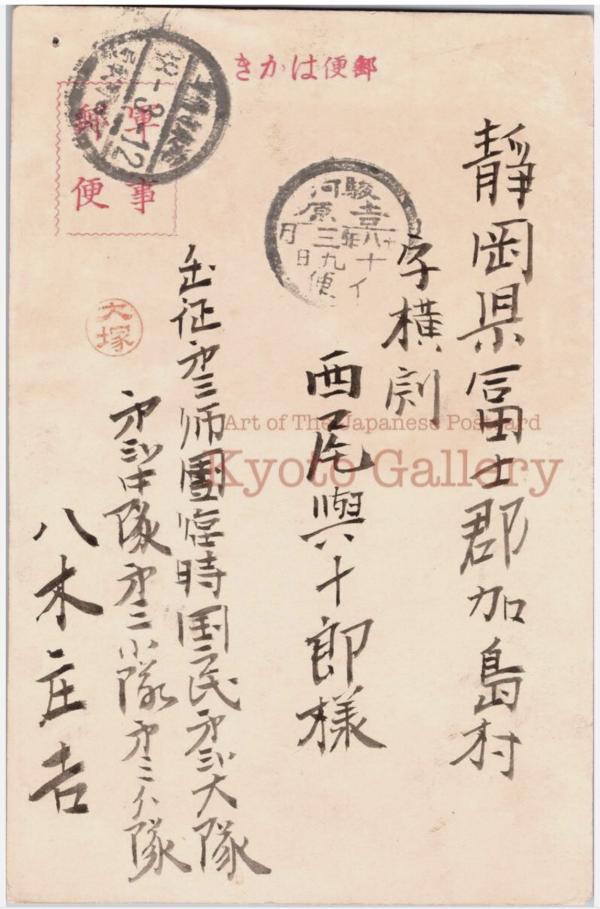 郵便はかき
軍事
郵便
靜岡県冨士郡加島村
字横割
西尾與十郎様
出征第三師團臨時国民第二大隊
第二中隊第二小隊第二分隊
八木庄吉
大塚
駿河
吉原
Art of The Japanese Postcard
Kyoto Gallery